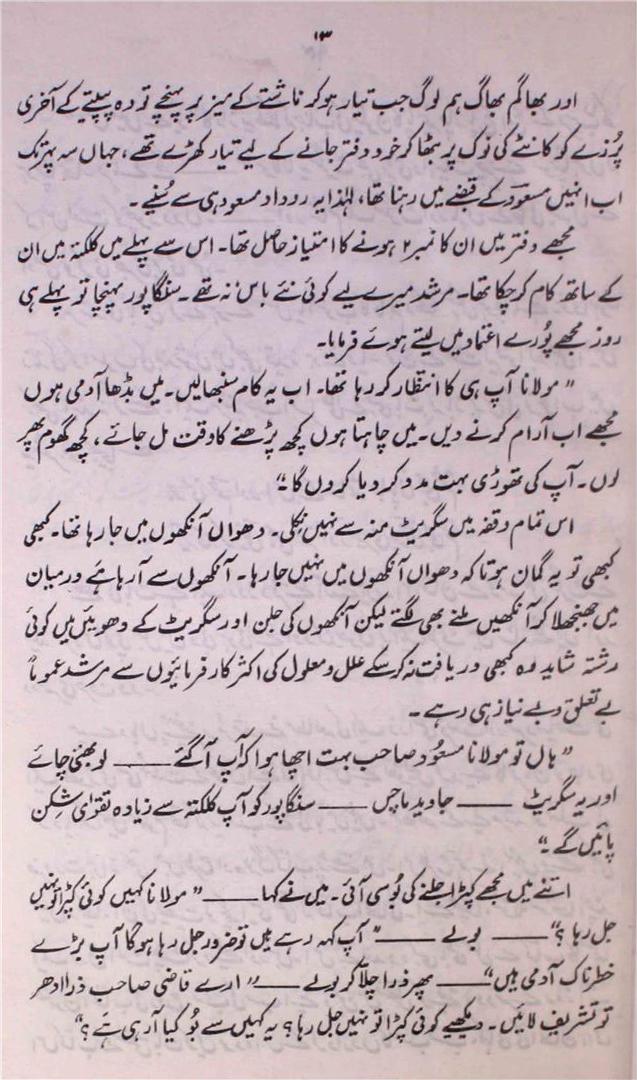 ۱۳
اور بھاگم بھاگ ہم لوگ جب تیار ہو کر ناشتے کے میز پر پہنچے تو وہ پپیتے کے آخری
پُرزے کو کانٹے کی نوک پر بٹھا کر خود دفتر جانے کے لیے تیار کھڑے تھے، جہاں سہ پہر تک
اب انہیں مسعود کے قبضے میں رہنا تھا، لہٰذا یہ روداد مسعود ہی سے سُنیے۔
مجھے دفتر میں ان کا نمبر ۲ ہونے کا امتیاز حاصل تھا۔ اس سے پہلے میں کلکتہ میں ان
کے ساتھ کام کر چکا تھا۔ مرشد میرے لیے کوئی نئے باس نہ تھے۔ سنگاپور پہنچا تو پہلے ہی
روز مجھے پُورے اعتماد میں لیتے ہوئے فرمایا۔
”مولانا آپ ہی کا انتظار کر رہا تھا۔ اب یہ کام سنبھالیں۔ میں بڈھا آدمی ہوں
مجھے اب آرام کرنے دیں۔ میں چاہتا ہوں کچھ پڑھنے کا وقت مل جائے، کچھ گھوم پھر
لوں۔ آپ کی تھوڑی بہت مدد کر دیا کروں گا۔“
اس تمام وقفہ میں سگریٹ منہ سے نہیں نکلی۔ دھواں آنکھوں میں جا رہا تھا۔ کبھی
کبھی تو یہ گمان ہوتا کہ دھواں آنکھوں میں نہیں جا رہا۔ آنکھوں سے آ رہا ہے درمیان
میں جھنجھلا کر آنکھیں ملنے بھی لگتے لیکن آنکھوں کی جلن اور سگریٹ کے دھوئیں میں کوئی
رشتہ شاید وہ کبھی دریافت نہ کر سکے علل و معلول کی اکثر کارفرمائیوں سے مرشد عموماً
بے تعلق و بے نیاز ہی رہے۔
”ہاں تو مولانا مسعُود صاحب بہت اچھا ہوا کہ آپ آ گئے —— لو بھئی چائے
اور یہ سگریٹ —— جاوید ماچس —— سنگاپور کو آپ کلکتہ سے زیادہ تقوٰی شکن
پائیں گے۔“
اتنے میں مجھے کپڑا جلنے کی بُو سی آئی۔ میں نے کہا —— ”مولانا کہیں کوئی کپڑا تو نہیں
جل رہا؟“ —— بولے —— ”آپ کہہ رہے ہیں تو ضرور جل رہا ہوگا آپ بڑے
خطرناک آدمی ہیں“ —— پھر ذرا چلا کر بولے —— ”ارے قاضی صاحب ذرا ادھر
تو تشریف لائیں۔ دیکھیے کوئی کپڑا تو نہیں جل رہا؟ یہ کہیں سے بُو کیا آ رہی ہے؟“